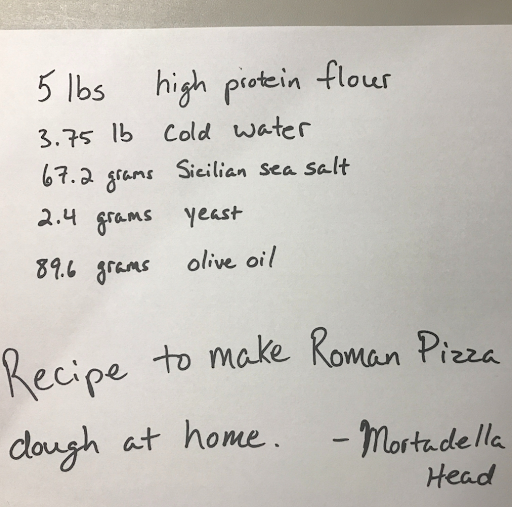 5 lbs high protein flour
3.75 lb Cold water
67.2 grams Sicilian sea salt
2.4 grams yeast
89.6 grams olive oil
Recipe to make Roman Pizza
dough at home. - Mortadella
Head